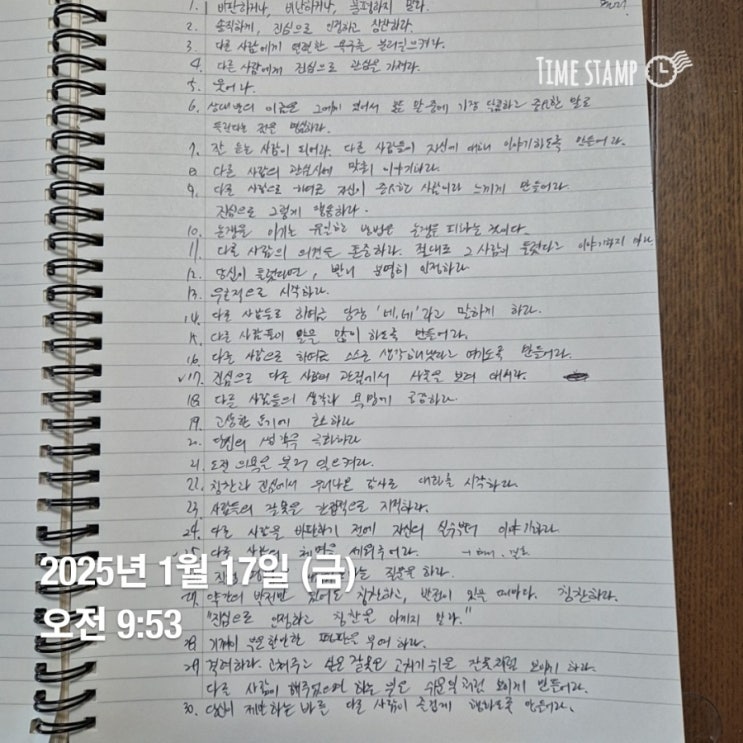 1. 비판하거나, 비난하거나, 불평하지 말라.
TIME STAMP
2. 솔직하게, 진심으로 인정하고 칭찬하라.
3. 다른 사람에게 열렬한 욕구를 불러일으켜라.
4. 다른 사람에게 진심으로 관심을 가져라.
5. 웃어라.
6. 상대방의 이름은 그에게 있어서 모든 말 중에 가장 달콤하고 중요한 말로
들린다는 것을 명심하라.
7. 잘 듣는 사람이 되어라. 다른 사람들이 자신에 대해 이야기하도록 만들어라.
8. 다른 사람의 관심사에 맞춰 이야기하라.
9. 다른 사람으로 하여금 자신이 중요한 사람이라 느끼게 만들어라
진심으로 그렇게 행동하라.
10. 논쟁을 이기는 유일한 방법은 논쟁을 피하는 것이다.
11. 다른 사람의 의견을 존중하라. 절대로 그 사람이 틀렸다고 이야기하지 마라
12. 당신이 틀렸다면, 빨리 분명히 인정하라
13. 우호적으로 시작하라.
14. 다른 사람들로 하여금 당장 '네, 네'라고 말하게 하라.
15. 다른 사람들이 말을 많이 하도록 만들어라.
16. 다른 사람으로 하여금 스스로 생각해냈다고 여기도록 만들어라.
✓17. 진심으로 다른 사람의 관점에서 사물을 보려 애써라.
18. 다른 사람들의 생각과 욕망에 공감하라.
19. 고상한 동기에 호소하라
20. 당신의 생각을 극화하라
21. 도전 의욕을 불러 일으켜라.
22. 칭찬과 진심에서 우러나온 감사로 대화를 시작하라.
23. 사람들의 잘못은 간접적으로 지적하라.
24. 다른 사람을 비판하기 전에 자신의 실수부터 이야기하라
25. 다른 사람의 체면을 세워주어라.
질문을 하라.
2025년 1월 17일 (금)
27. 약간의 발전만 있어도 칭찬하고, 발전이 있을 때마다 칭찬하라.
"진심으로 인정하고 칭찬을 아끼지 말라."
오전 9:53
28. 평판을 부여하라.
29. 격려하라. 고쳐주고 싶은 잘못은 고치기 쉬운 잘못처럼 보이게 하라.
다른 사람이 해주었으면 하는 것은 쉬운 것처럼 보이게 만들어라.
30. 당신이 제안하는 바를 다른 사람이 즐겁게 하도록 만들어라.